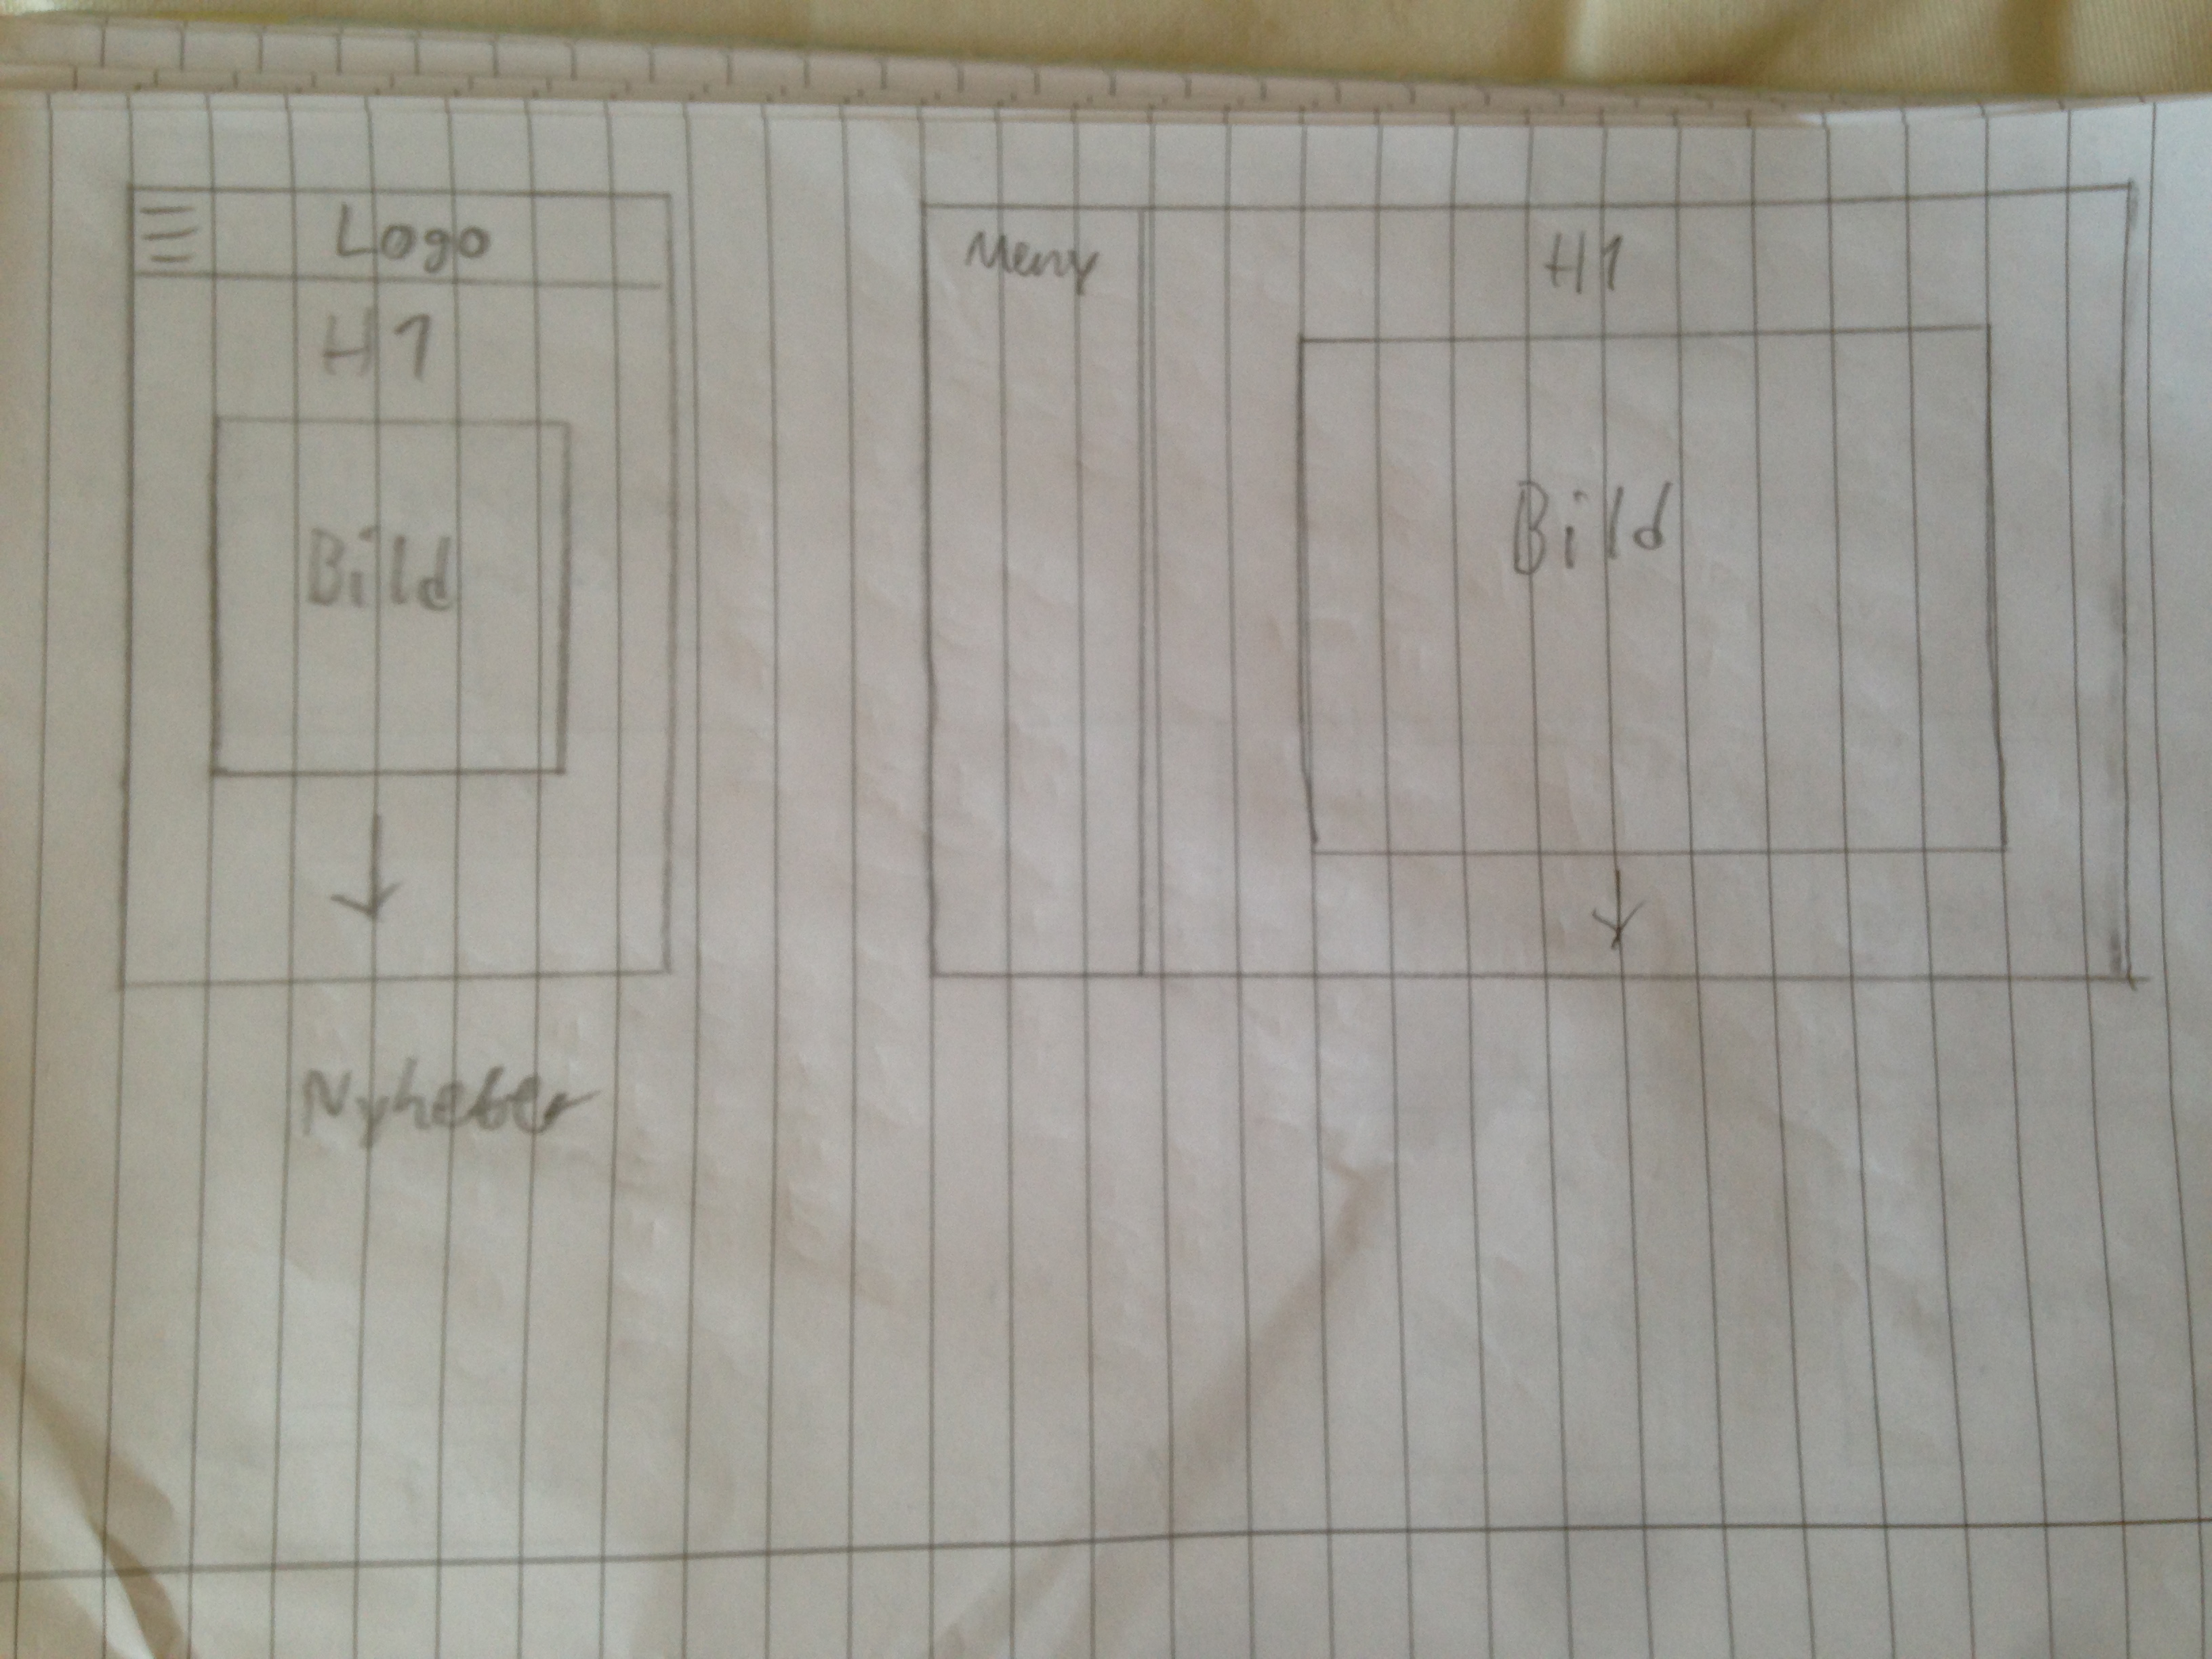 Logo
H1
Bild
Nyheter
Meny
H1
Bild